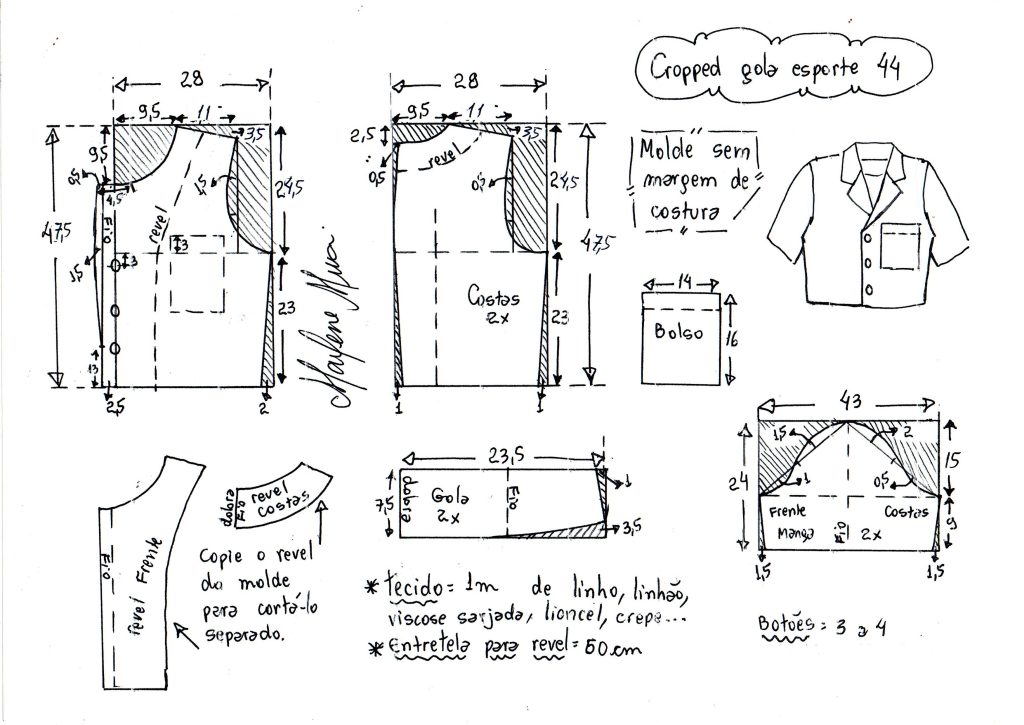 Cropped gola esporte 44
Molde sem
margem de
costura
28
9,5
11
3,5
9,5
0,5
4,5
1,5
24,5
47,5
Fio
revel
3
3
1,5
23
13
2,5
2
Marlene Mukai
28
9,5
11
2,5
3,5
revel
0,5
0,5
24,5
47,5
Costas
2x
23
1
1
14
Bolso
16
43
1,5
2
24
15
1
0,5
Frente
Costas
Manga
Fio
2x
9
1,5
1,5
23,5
1
7,5
dobra
Gola
2x
Fio
3,5
Fio
revel Frente
dobra
Fio
revel
costas
Copie o revel
da molde
para cortá-lo
separado.
* Tecido = 1m de linho, linhão,
viscose sarjada, lioncel, crepe...
* Entretela para revel = 50 cm
Botões = 3 a 4